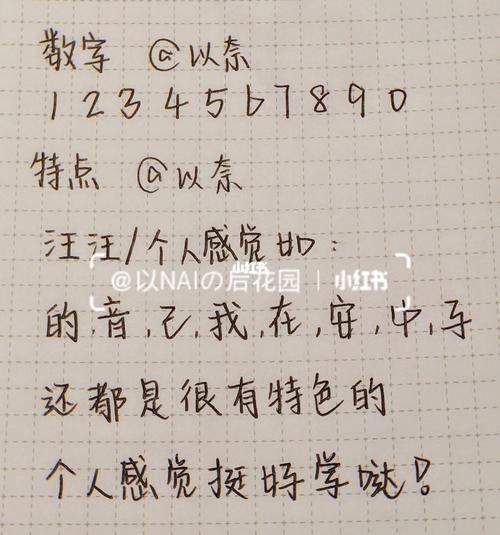 数字 @以奈
1 2 3 4 5 6 7 8 9 0
特点 @以奈
汪汪/个人感觉如：
小红书
@以NAIの后花园 | 小红书
的,音,己,我,在,安,中,子
还都是很有特色的
个人感觉挺好学哒！